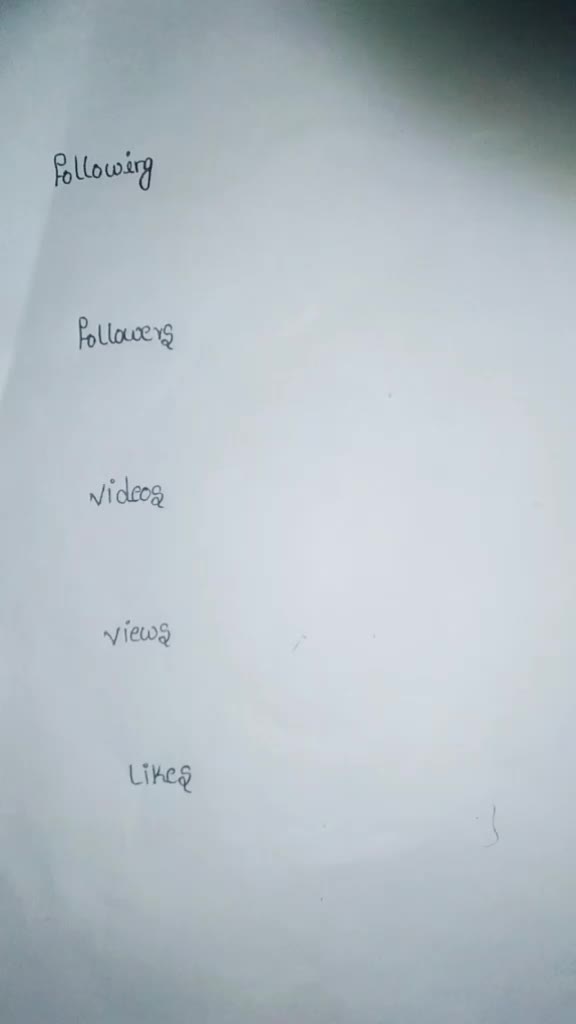 Following
Followers
Videos
Views
Likes